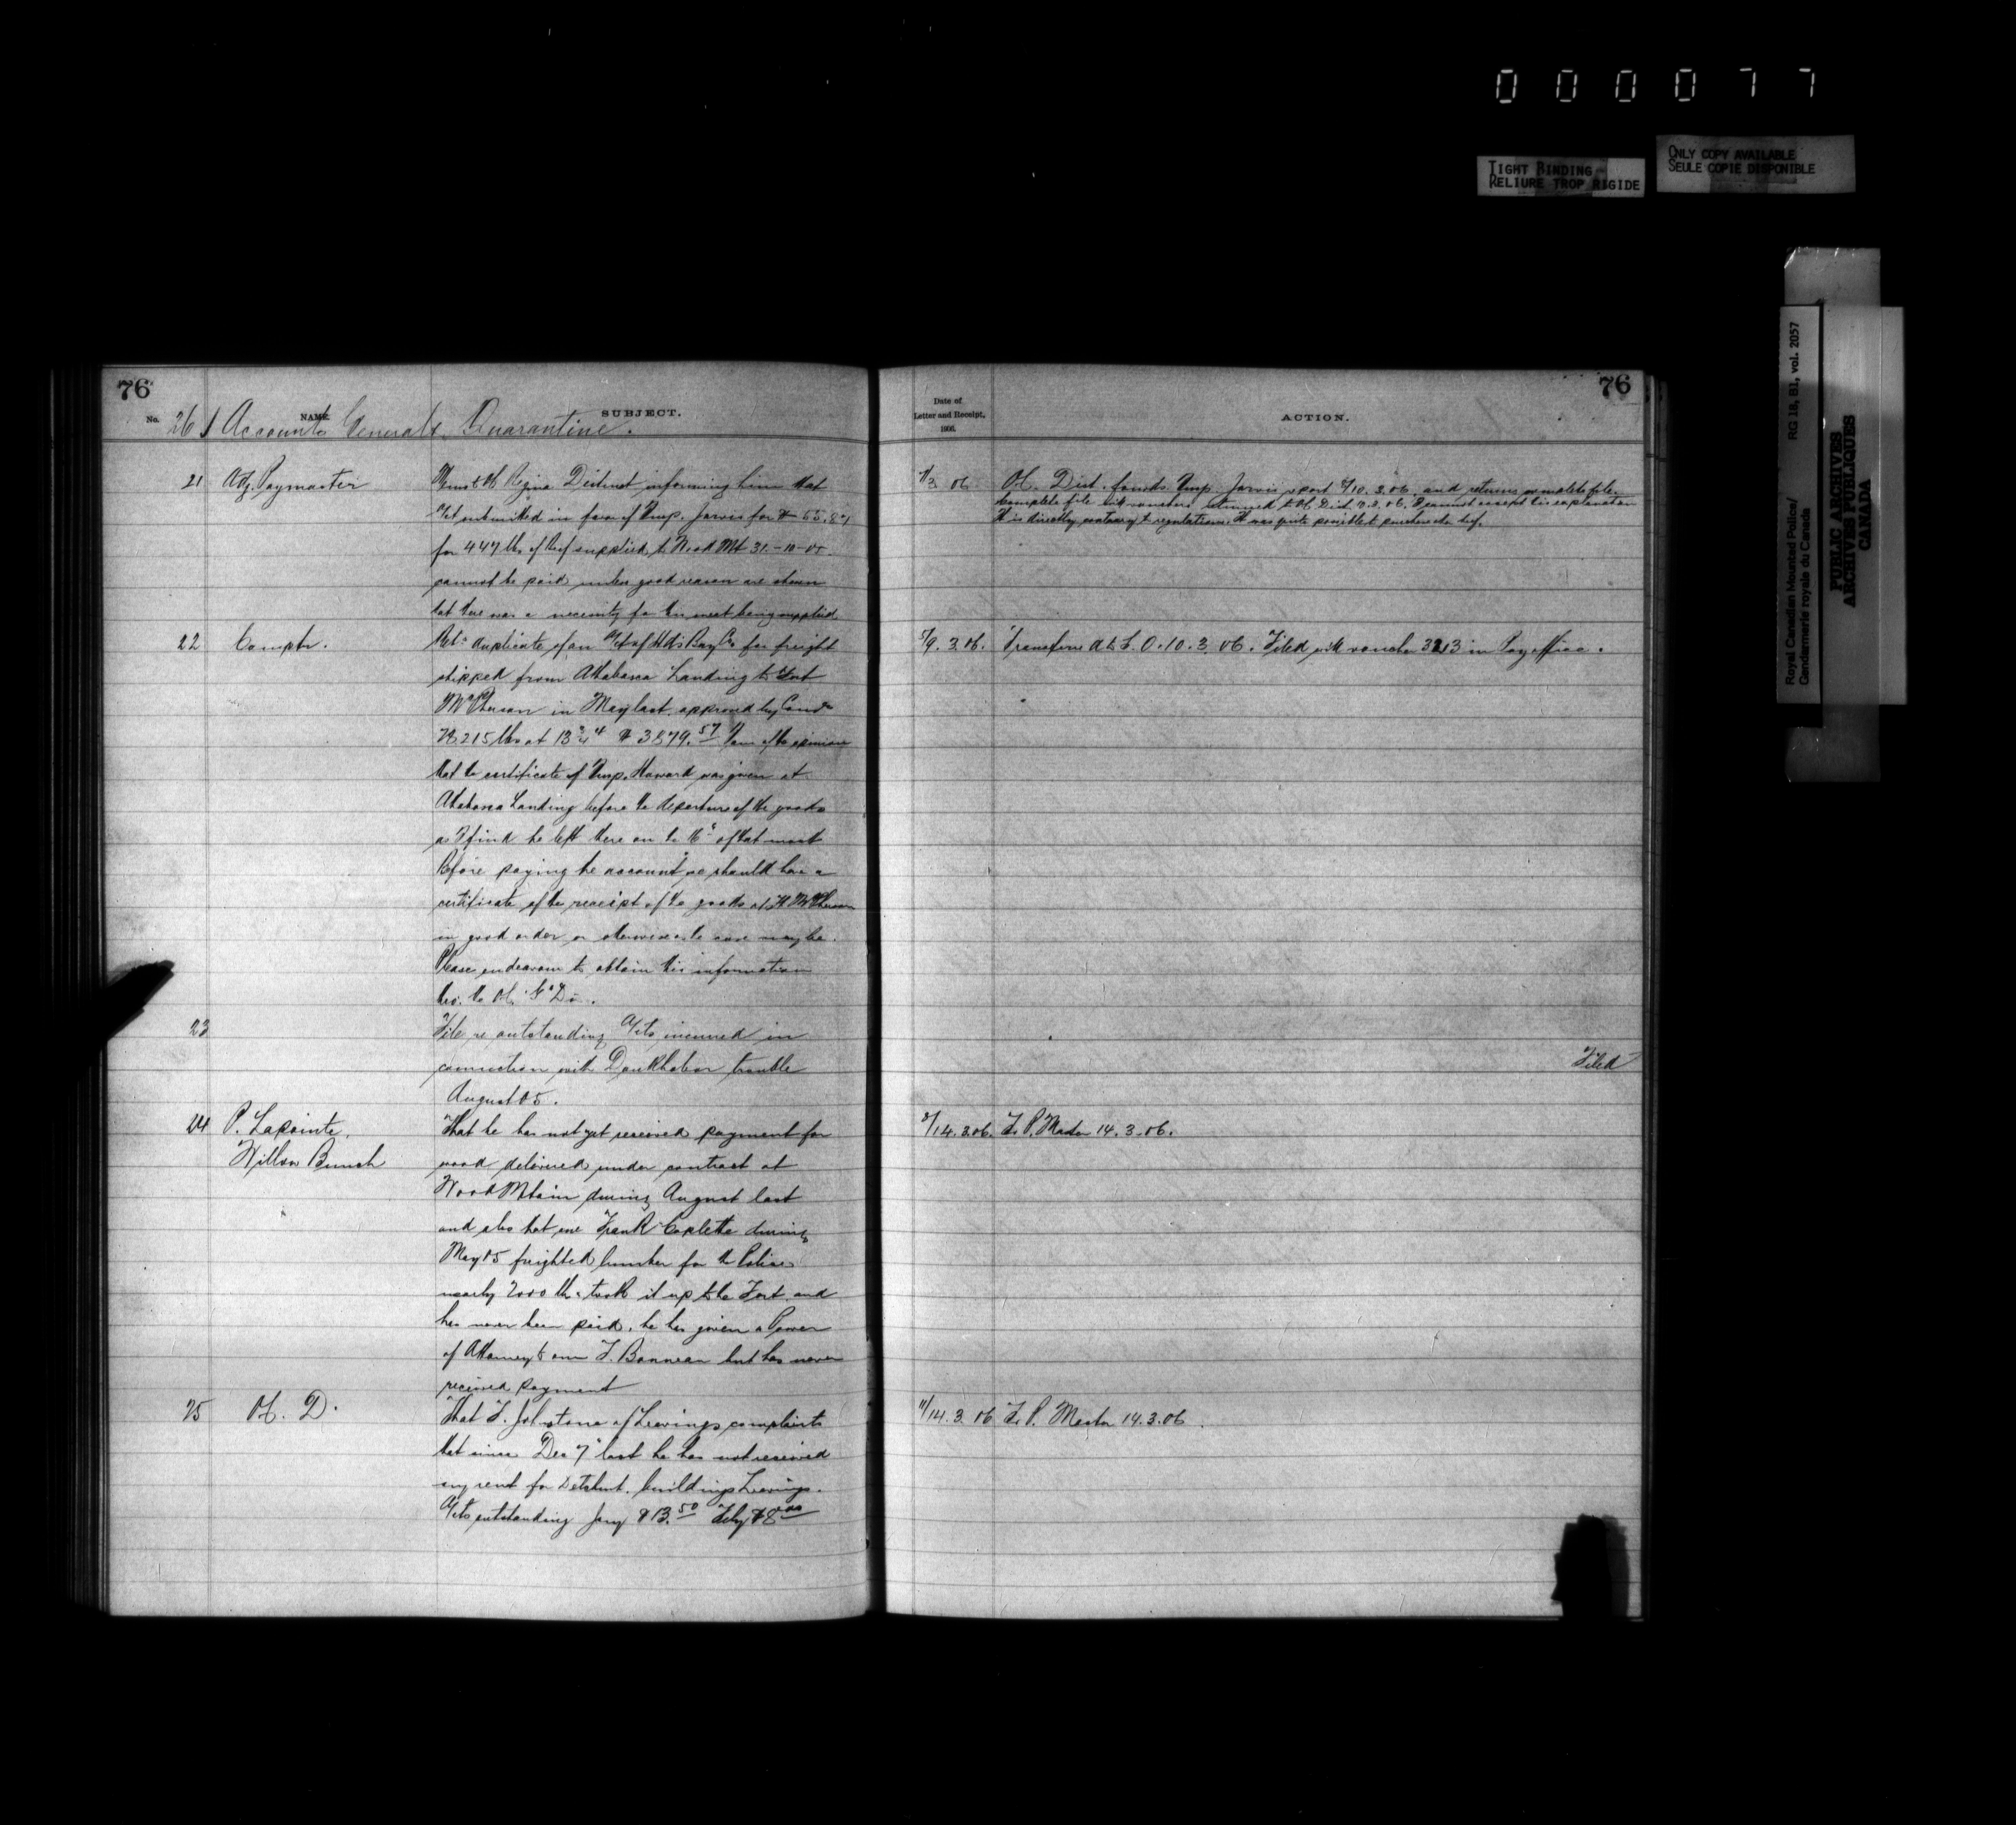 0 0 0 0 7 7
TIGHT BINDING
RELIURE TROP RIGIDE
ONLY COPY AVAILABLE
SEULE COPIE DISPONIBLE
Royal Canadian Mounted Police/ RG 18, B1, vol. 2057
Gendarmerie royale du Canada
PUBLIC ARCHIVES
ARCHIVES PUBLIQUES
CANADA
76
No. NAME. SUBJECT.
261 Accounts General & Quarantine.
21 Adj. Paymaster
Regina District informing him that
submitted in favor of Insp. Jarvis for $55.87
for 447 lbs of beef supplied to Wood Mt 31-10-05
cannot be paid unless good reason are shown
that there was a necessity for this meat being supplied
22 Comptr.
duplicate of an a/ct of Hds Bay Co for freight
shipped from Athabasca Landing to Fort
McPherson in May last, approved by
28215 lbs at 13¾ $3879.57 I am of the opinion
that the certificate of Insp. Howard was given at
Athabasca Landing before the departure of the goods
as I find he left there on the of that month
Before paying the account we should have a
certificate of the receipt of the goods at Ft McPherson
in good order or otherwise as the case may be.
Please endeavour to obtain this information
thro. the O.C. "G" Div.
23
File re outstanding A/cts incurred in
connection with Doukhobor trouble
August 05.
24 P. Lapointe,
Willow Bunch
That he has not yet received payment for
wood delivered under contract at
Wood Mtain during August last
and also that one Frank during
May 05 freighted lumber for the Police
nearly 2000 lbs took it up to the Fort and
has never been paid. he has given a Power
of Attorney to one F. Bonneau but has never
received payment
25 D.
That F. Johnstone of Leavings complaints
that since Dec 7 last he has not received
any rent for Detchmt. buildings Leavings.
A/cts outstanding Jany $13.50 Feby $8.00
76
Date of
Letter and Receipt,
1906.
ACTION.
1/3 06
O.C. Dist. forwds Insp. Jarvis report 9/10.3.06. and returns complete file.
Complete file with vouchers returned to O.C. Dist. 06. I cannot accept his explanation
It is directly contrary to regulations. It was quite possible to purchase the beef.
5/9.3.06. Transferred A to L. O. 10.3.06. Filed with voucher 3213 in Pay office.
Filed
8/14.3.06. To P. Master 14.3.06.
11/14.3.06 To P. Master 14.3.06.